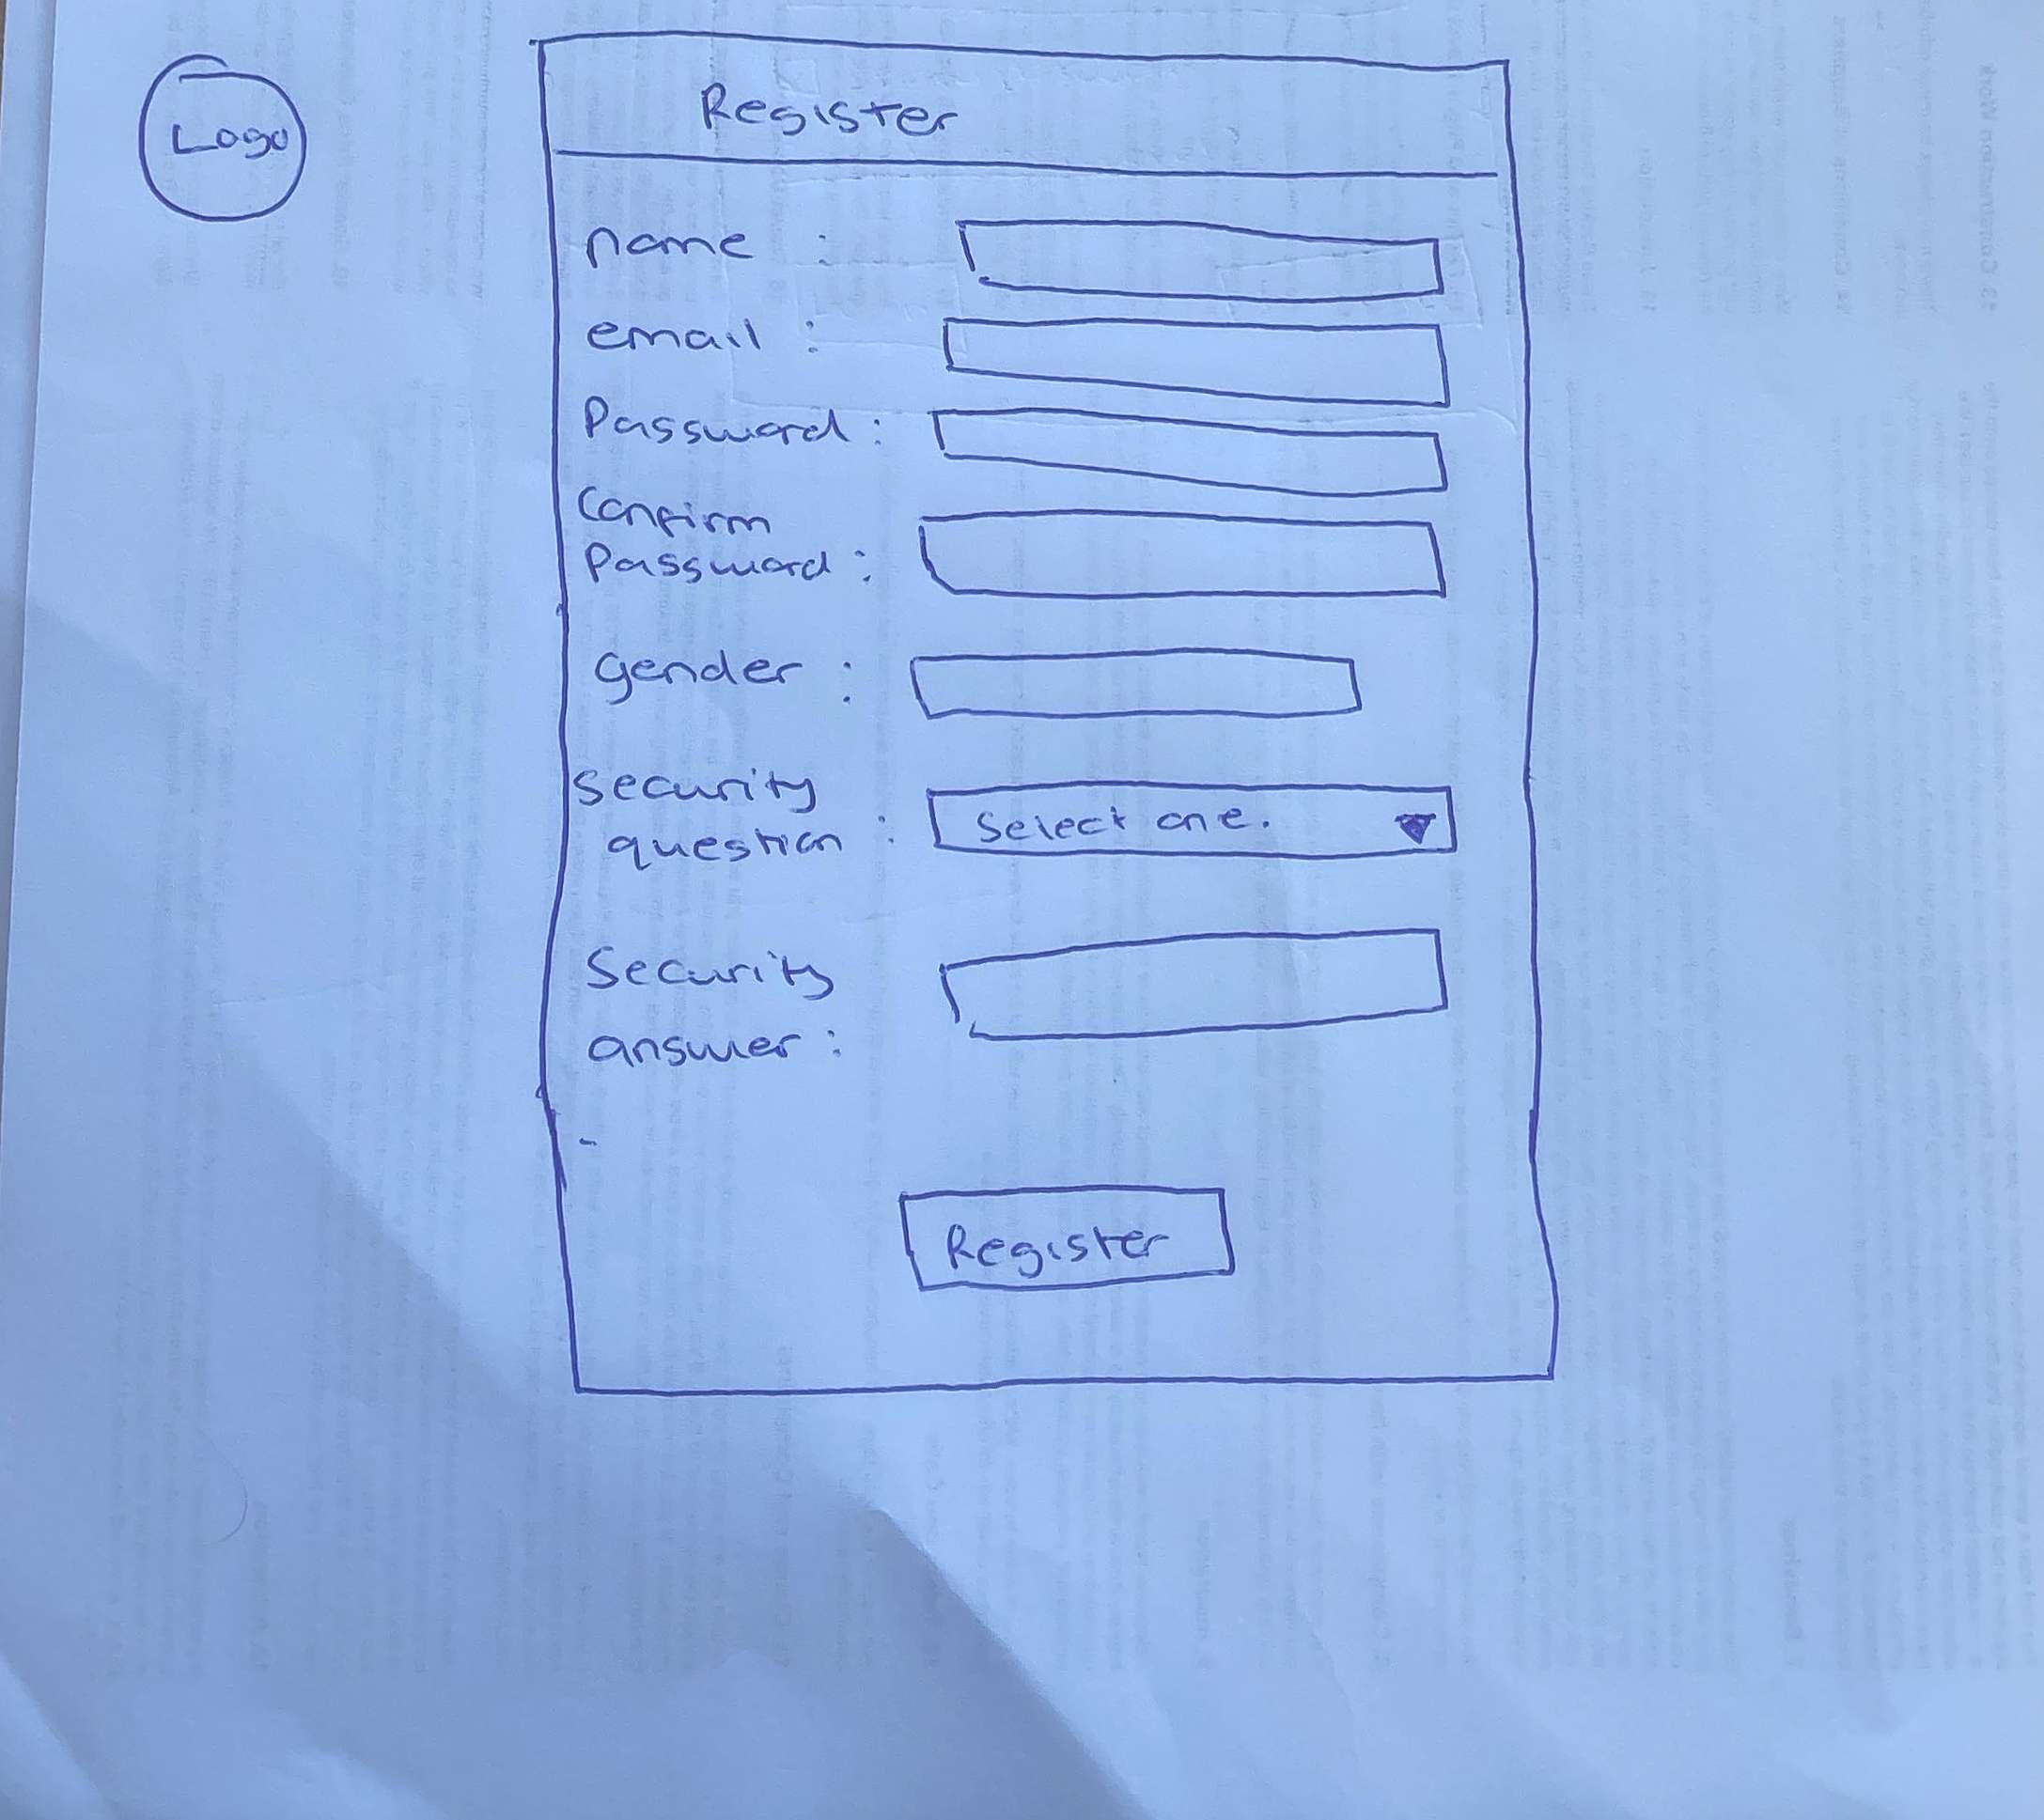 Logo
Register
name :
email :
Password :
Confirm
Password :
gender :
Security
question :
Select one.
Security
answer :
Register